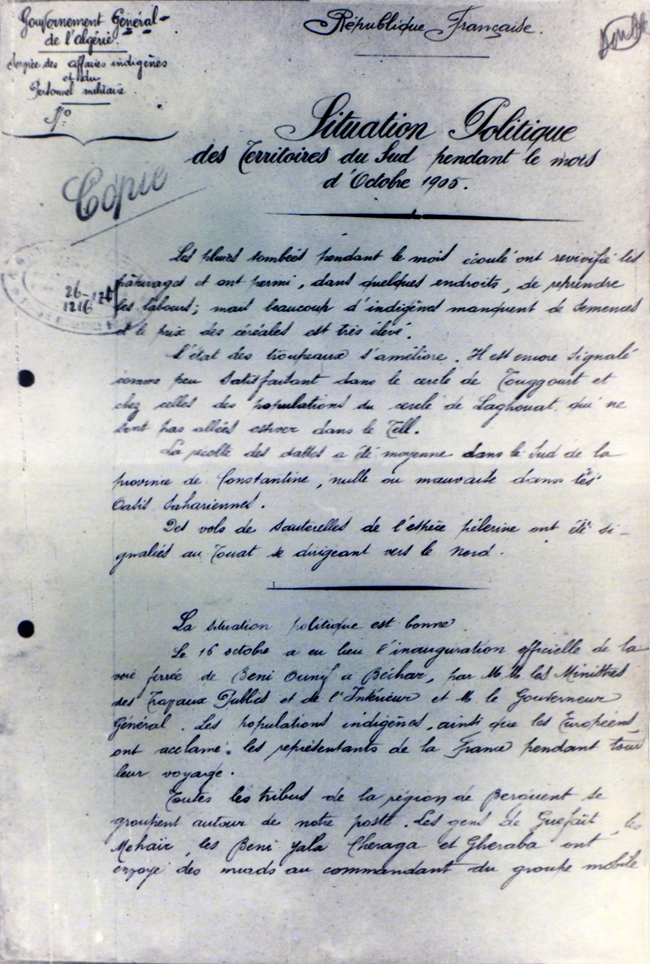 Gouvernement Général
de l'Algérie.
Service des affaires indigènes
et du
Personnel militaire
N°
République Française.
Double
Situation Politique
des Territoires du Sud pendant le mois
d'Octobre 1905.
Copie
26-
1216
Les pluies tombées pendant le mois écoulé ont revivifié les
pâturages et ont permi, dans quelques endroits, de reprendre
les labours; mais beaucoup d'indigènes manquent de semences
et le prix des céréales est très élevé.
L'état des troupeaux s'améliore. Il est encore signalé
comme peu satisfaisant dans le cercle de Touggourt et
chez celles des populations du cercle de Laghouat qui ne
sont pas allées estiver dans le Tell.
La récolte des dattes a été moyenne dans le Sud de la
province de Constantine, nulle ou mauvaise dans les
Oasis Sahariennes.
Des vols de sauterelles de l'espèce pèlerine ont été si-
gnalés au Touat se dirigeant vers le Nord.
La situation politique est bonne
Le 16 octobre a eu lieu l'inauguration officielle de la
voie ferrée de Beni Ounif à Béchar, par M.M. les Ministres
des Travaux Publics et de l'Intérieur et M. le Gouverneur
Général. Les populations indigènes, ainsi que les Européens
ont acclamé les représentants de la France pendant tout
leur voyage.
Toutes les tribus de la région de Berguent se
groupent autour de notre poste. Les gens de Guefaït, les
Mehaïr, les Beni Yala Cheraga et Gheraba ont
envoyé des miads au commandant du groupe mobile